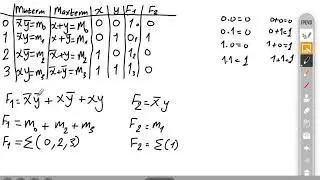 Minterm Maxterm x y F₁ F₂
0 x̅y̅=m₀ x+y=M₀ 0 0 1 0
1 x̅y=m₁ 0 1 0 1
2 xy̅=m₂ 1 0 1 0
3 xy=m₃ 1 1 1 0
0.0=0 0+0=0
0.1=0 0+1=1
1.0=0 1+0=1
1.1=1 1+1=1
F₁ = x̅y̅ + xy̅ + xy F₂ = x̅y
F₁ = m₀ + m₂ + m₃ F₂ = m₁
F₁ = Σ(0,2,3) F₂ = Σ(1)